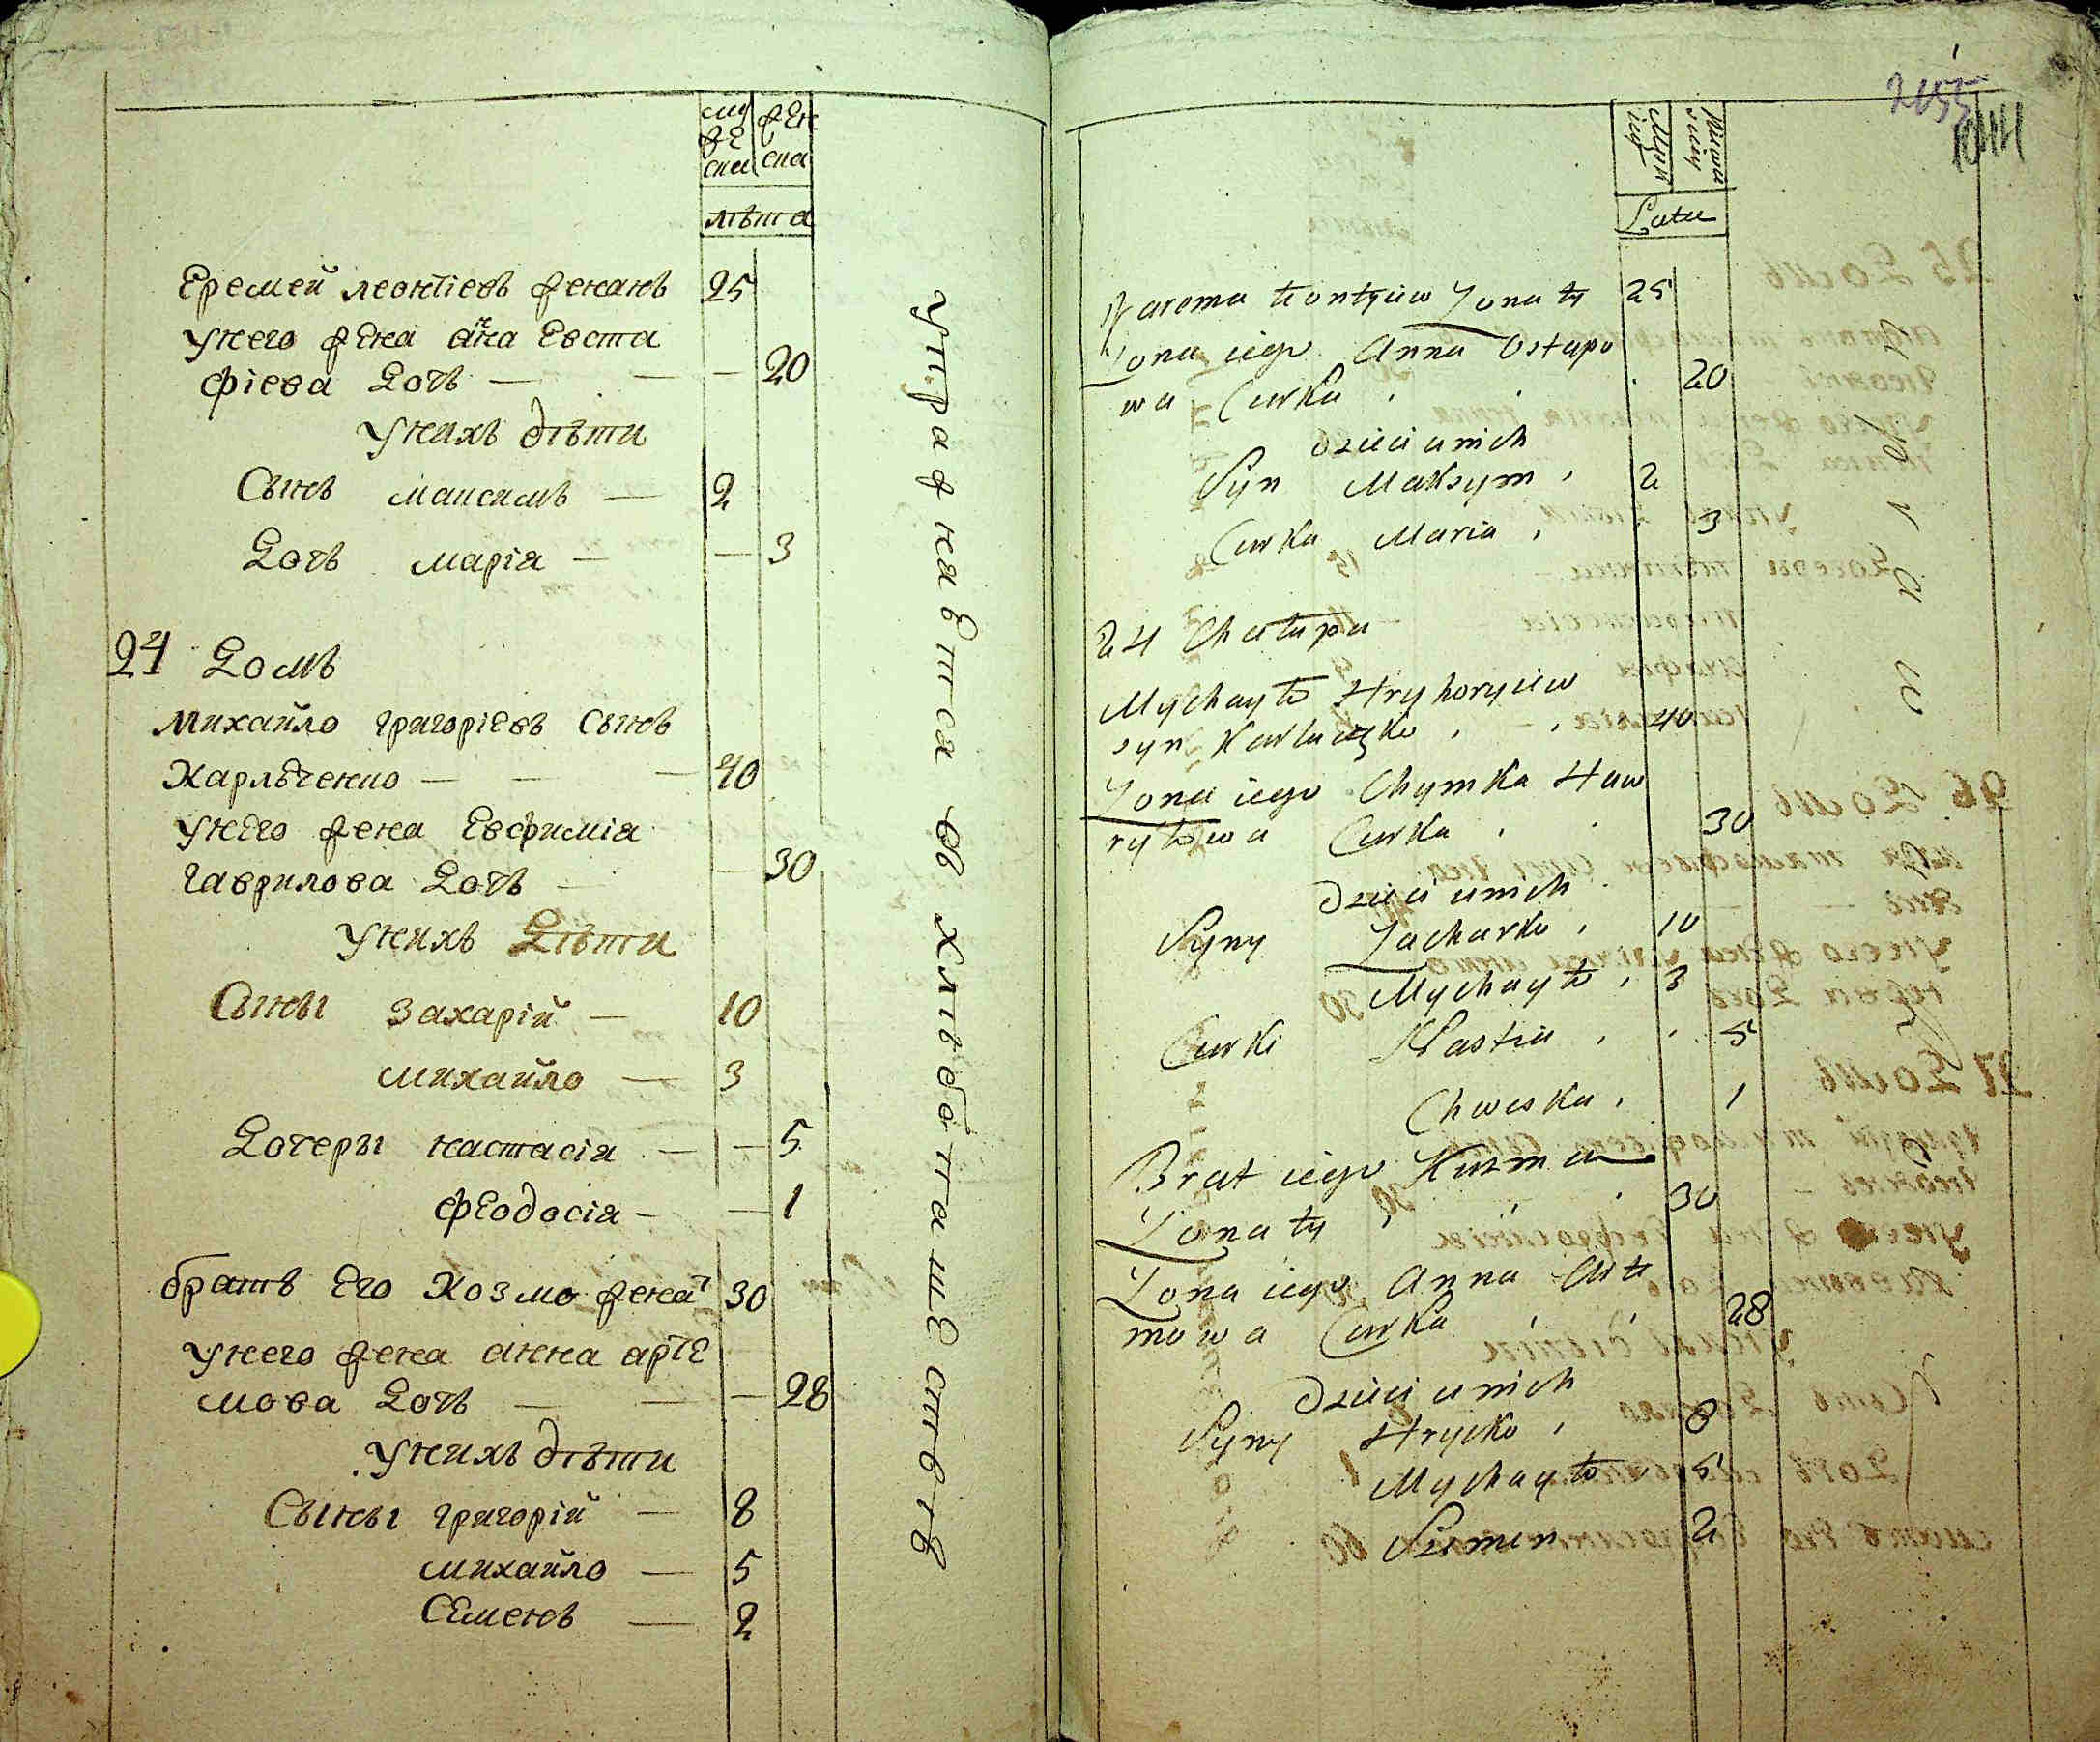 му
же
ска
жен
ска
лѣта
Еремей леонтіевъ женатъ 25
унего жена анна Евста
фіева Дочь — — — 20
унихъ дѣти
Сынъ максимъ — 2
Дочь марія — — 3
24 Домъ
Михайло григоріевъ Сынъ
Харльченко — — — 40
унего жена Евфимія
гаврилова Дочь — — 30
унихъ Дѣти
Сыны Захарій — 10
михайло — 3
Дочеры настасія — — 5
феодосія — — 1
братъ Его Козмо женатъ 30
унего жена анна арте
мова Дочь — — — 28
унихъ дѣти
Сыны григорій — 8
михайло — 5
Семенъ — 2
упражняЕтся въ хлѣбопашЕствѣ
1044
Lata
Jarema Leontyiew Zonaty 25
Zona iego Anna Ostapo
wa Curka 20
Dzieci unich
Syn Maksym 2
Curka Maria 3
24 Chałupa
Mychayło Hryhoryiew
syn 40
Zona iego Chymka Haw
ryłowa Curka 30
Dzieci unich
Syny Zacharko 10
Mychayło 3
Curki Nastia 5
Chweska 1
Brat iego Kuzma
Zonaty 30
Zona iego Anna Arte
mowa Curka 28
Dzieci unich
Syny Hrycko 8
Mychayło 5
Semen 2